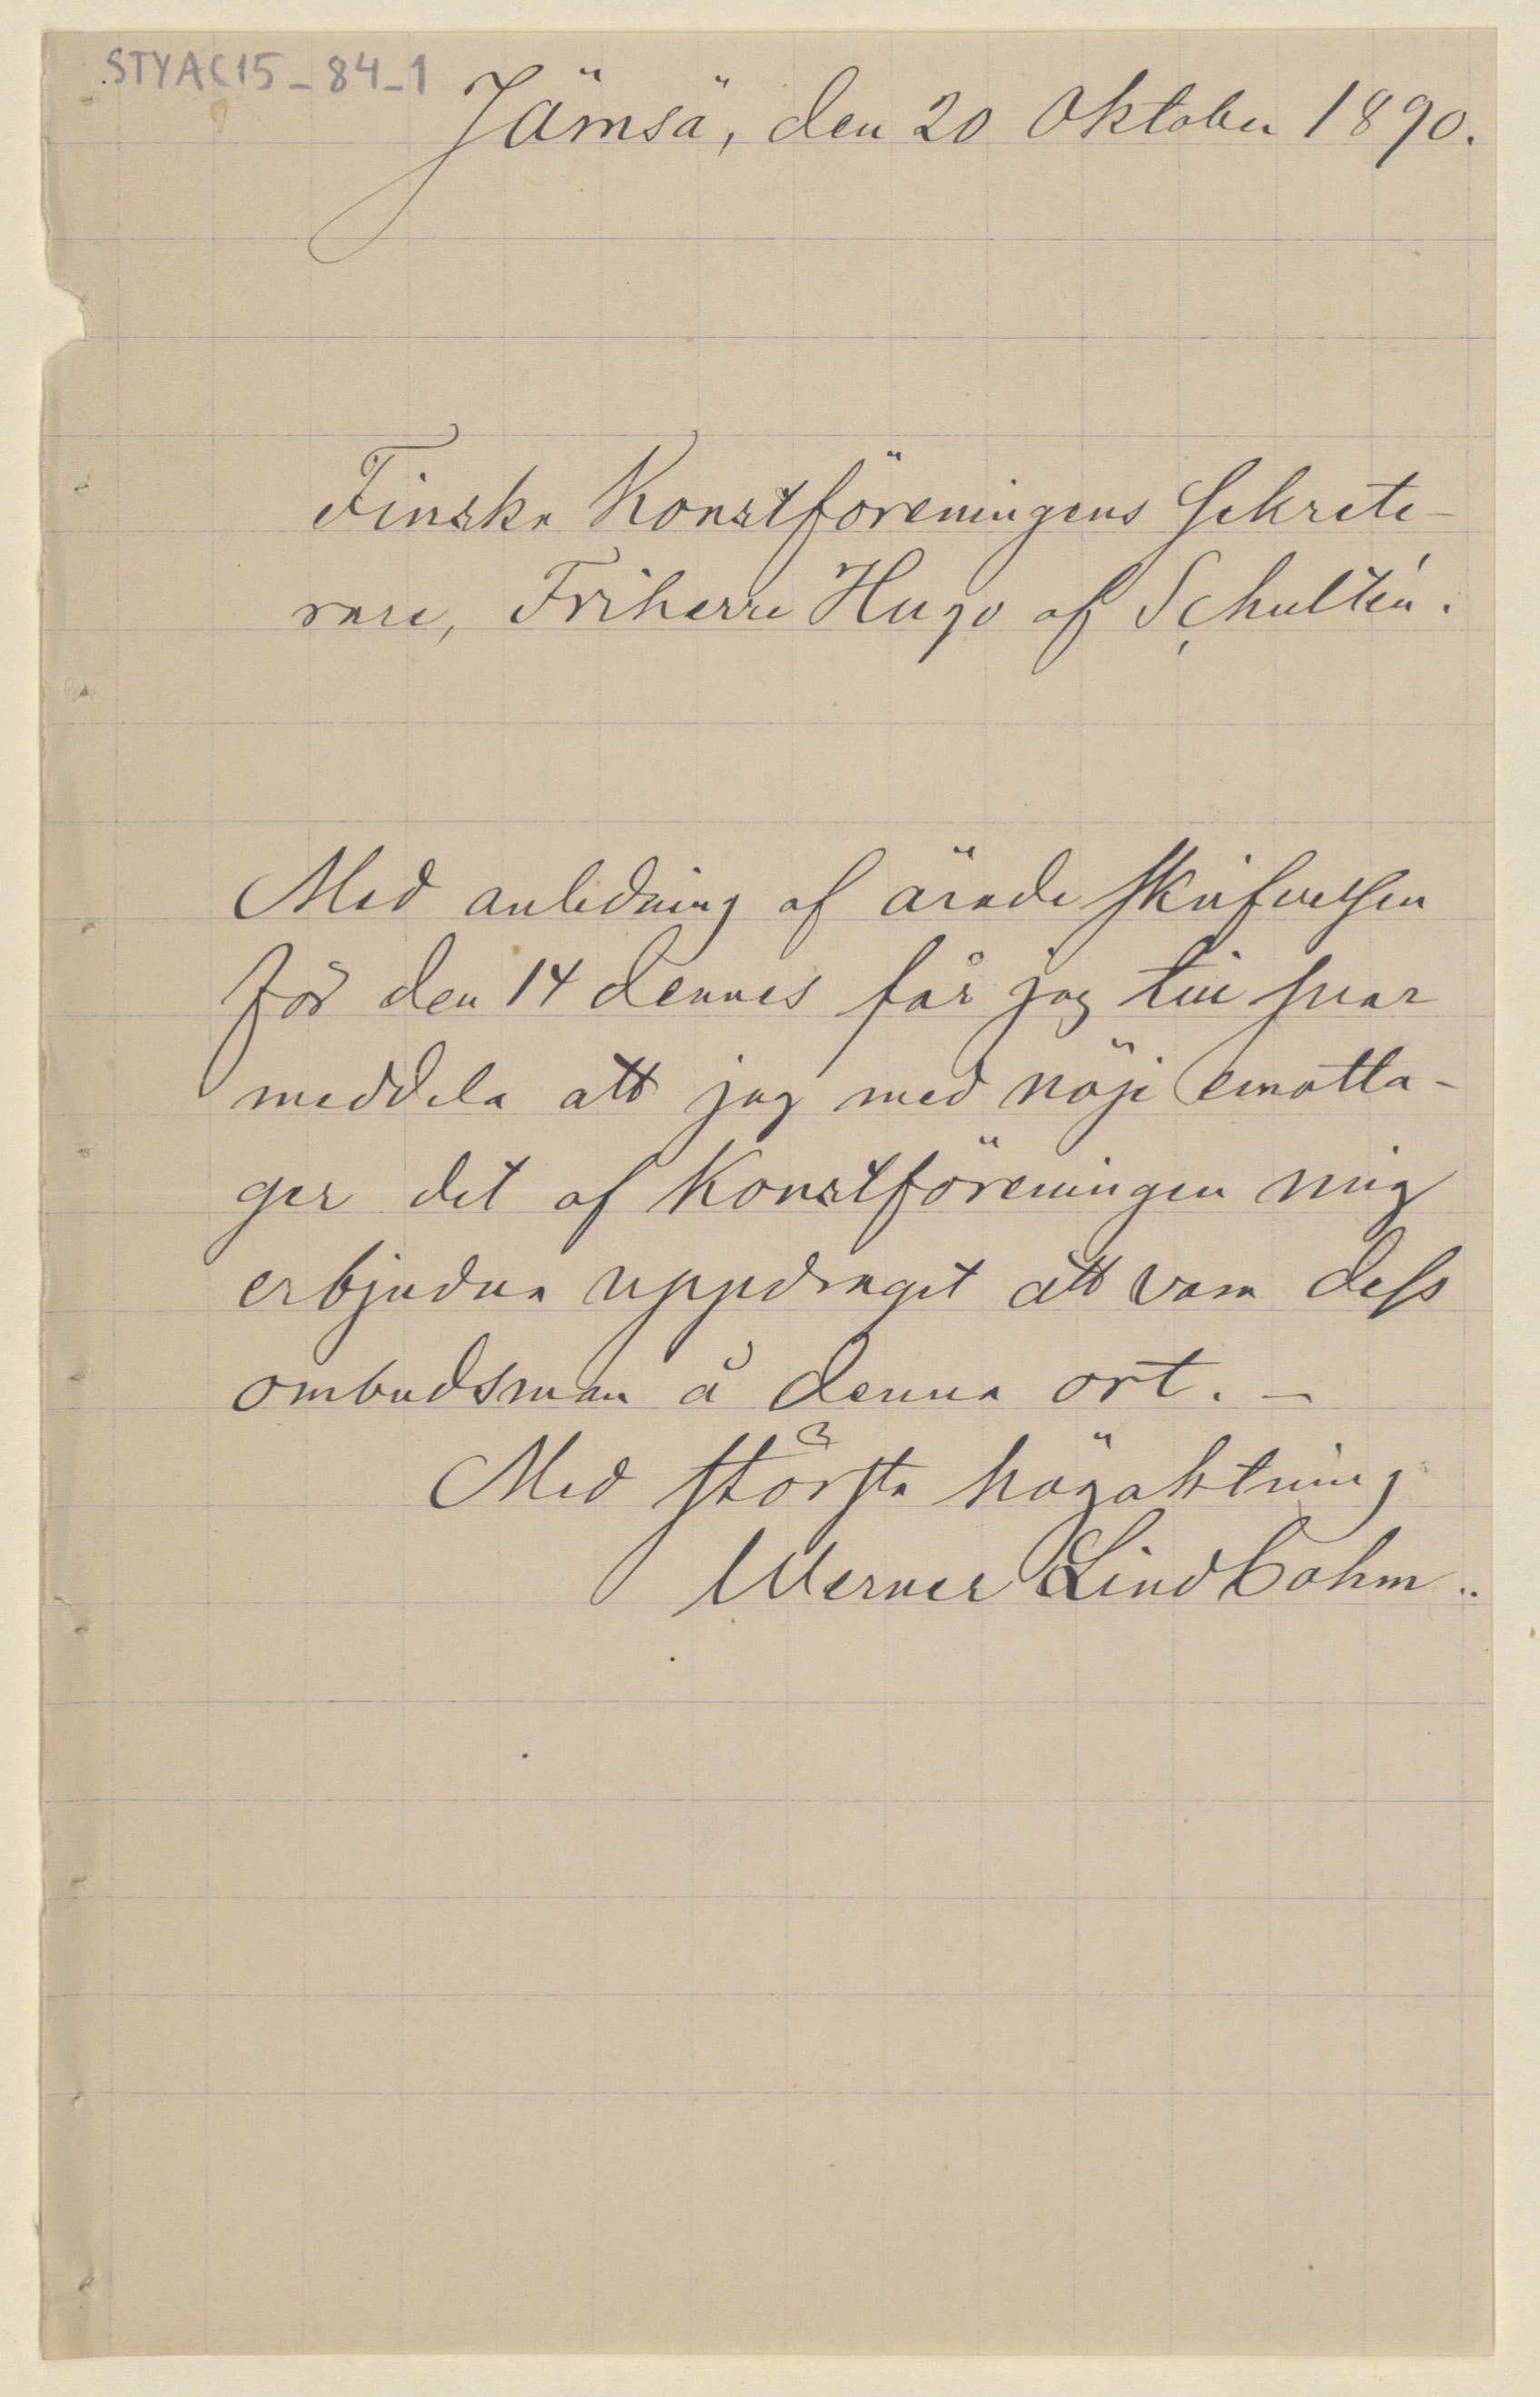 STYAC15_84_1
Jämsä, den 20 Oktober 1890.
Finska Konstföreningens Sekrete-
rare, Friherre Hugo af Schultén.
Med anledning af ärade skrifvelsen
för den 14 dennes får jag till svar
meddela att jag med nöje emotta-
ger det af Konstföreningen mig
erbjudna uppdraget att vara dess
ombudsman å denna ort. –
Med största högaktning
Werner Lindbohm.